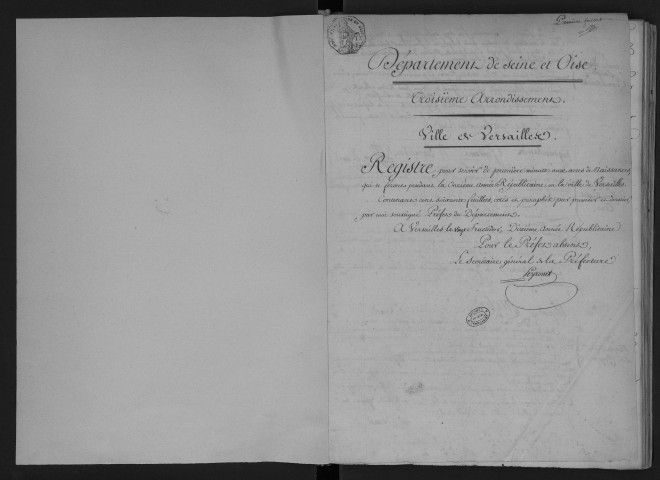 Département de Seine et Oise
Troisième Arrondissement.
Ville de Versailles.
Registre, pour servir de première minute aux actes de Naissances
qui se feront pendant la onzième année Républicaine, en la ville de Versailles
Contenant cent soixante feuillets, cotés et paraphés par premier et dernier
par moi soussigné Préfet du Département
A Versailles le Fructidor, Dixième Année Républicaine
Pour le Préfet absent,
Le Secrétaire général de la Préfecture